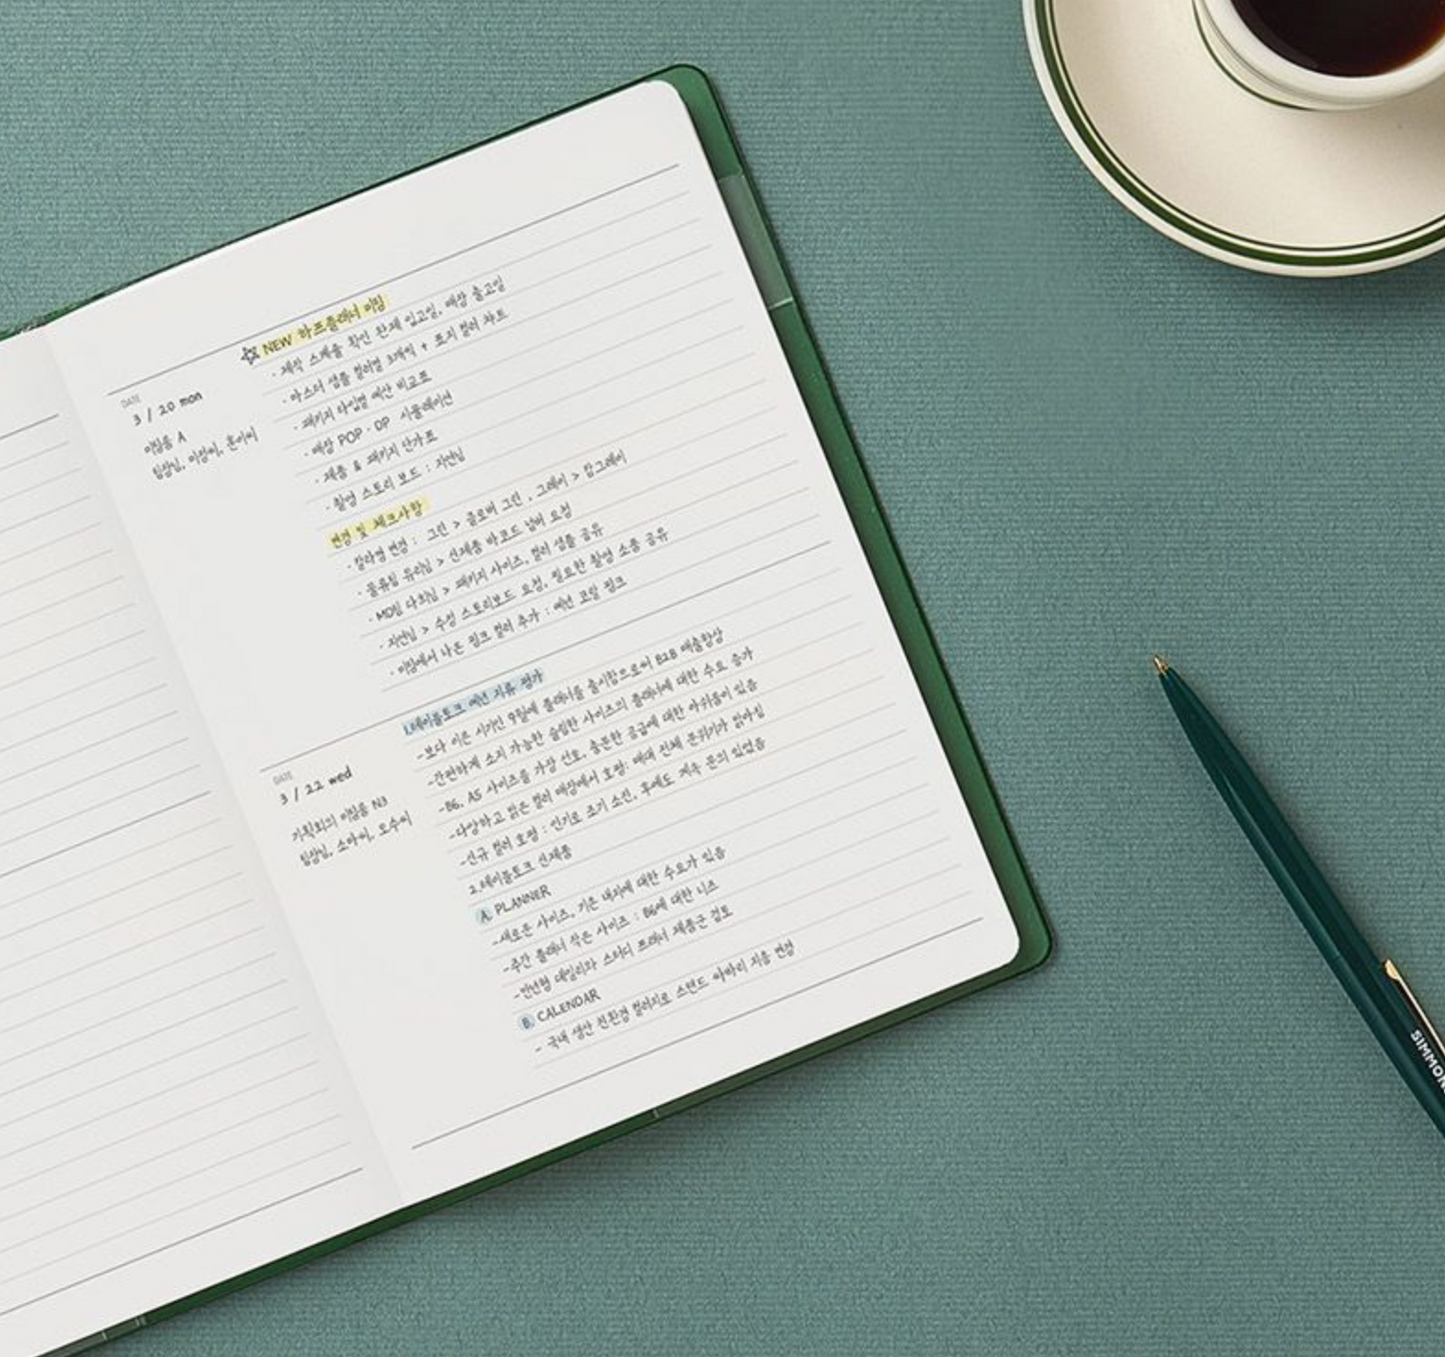 DATE
3 / 20 mon
미팅룸 A
팀장님, 이장이, 훈이씨
☆ NEW 하프플래너 미팅
· 제작 스케줄 확인 완제 입고일, 매장 출고일
· 마스터 샘플 컬러별 3개씩 + 표지 컬러 차트
· 패키지 타입별 예산 비교표
· 매장 POP · DP 시뮬레이션
· 제품 & 패키지 단가표
· 촬영 스토리 보드 : 지연님
변경 및 체크사항
· 컬러명 변경 : 그린 > 클로버 그린, 그레이 > 캄그레이
· 물류팀 유리님 > 신제품 바코드 넘버 요청
· MD팀 다희님 > 패키지 사이즈, 컬러 샘플 공유
· 지연님 > 수정 스토리보드 요청, 필요한 촬영 소품 공유
· 미팅에서 나온 핑크 컬러 추가 : 예년 코랄 핑크
DATE
3 / 22 wed
기획회의 미팅룸 N3
팀장님, 소마이, 오수이
1.테이블토크 예년 지류 평가
-보다 이른 시기인 9월에 플래너를 출시함으로써 B2B 매출향상
-간편하게 소지 가능한 슬림한 사이즈의 플래너에 대한 수요 증가
-B6, A5 사이즈를 가장 선호, 충분한 공급에 대한 아쉬움이 있음
-다양하고 밝은 컬러 매장에서 호평: 매대 전체 분위기가 밝아짐
-신규 컬러 호평 : 인기로 조기 소진, 후에도 계속 문의 있었음
2.테이블토크 신제품
A. PLANNER
-새로운 사이즈, 기존 내지에 대한 수요가 있음
-주간 플래너 작은 사이즈 : B6에 대한 니즈
-만년형 데일리와 스터디 플래너 제품군 검토
B. CALENDAR
- 국내 생산 친환경 컬러지로 스탠드 삼바리 지음 변경
SIMMON